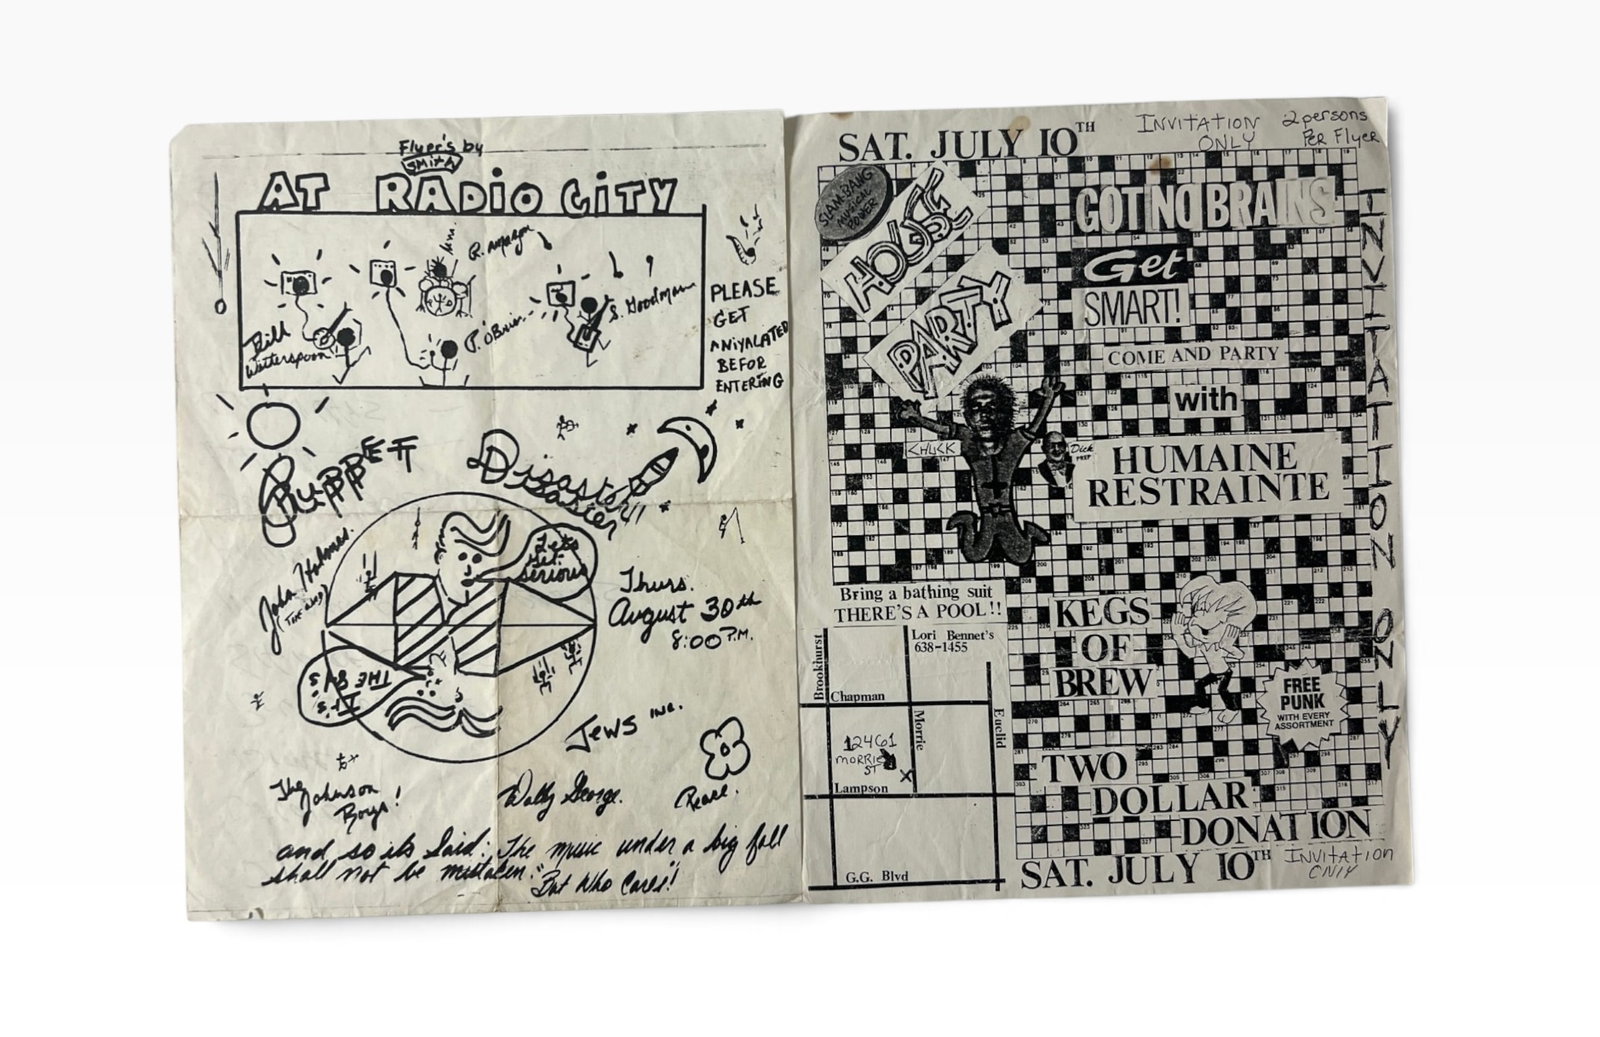 Flyer's by
SMITH
AT RADIO CITY
Bill
Witterspoon!
P. O'Brien.
S. Goodman
PLEASE
GET
ANIYALATED
BEFOR
ENTERING
PUPPET
Disaster
Disaster
John Holmes.
Lets
Get
serious
THE
Thurs.
August 30th
8:00 P.M.
JEWS INC.
The
Johnson
Boys!
Wally George.
and so its said: "The music under a big fall
shall not be mistaken."
But Who Cares!!
SAT. JULY 10TH
INVITATION
ONLY
2 persons
PER Flyer
SLAM-BANG
MUSICAL
POWER
HOUSE
PARTY
GOT NO BRAINS
Get
SMART!
COME AND PARTY
with
CHUCK
Dick
HUMAINE
RESTRAINTE
INVITATION ONLY
Bring a bathing suit
THERE'S A POOL!!
Lori Bennet's
638-1455
Brookhurst
Chapman
Morrie
Euclid
12461
MORRIE
ST
X
Lampson
G.G. Blvd
KEGS
OF
BREW
FREE
PUNK
WITH EVERY
ASSORTMENT
TWO
DOLLAR
DONATION
SAT. JULY 10TH
INVITATION
ONLY